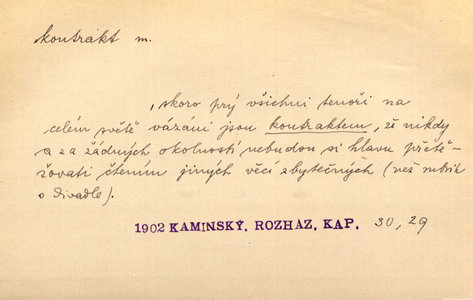 kontrakt m.
, skoro prý všichni tenoři na
celém světě vázáni jsou kontraktem, že nikdy
a za žádných okolností nebudou si hlavu přetě-
žovati čtením jiných věcí zbytečných (než rubrik
o divadle).
1902 KAMINSKÝ, ROZHÁZ, KAP. 30, 29